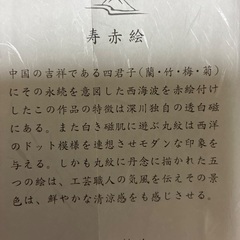 寿赤絵
中国の吉祥である四君子(蘭・竹・梅・菊)
にその永続を意図した西海波を赤絵付け
したこの作品の特徴は深川独自の透白磁
にある。また白き磁肌に遊ぶ丸紋は西洋
のドット模様を連想させモダンな印象を
与える。しかも丸紋に丹念に描かれた五
つの絵は、工芸職人の気風を伝えその景
色は、鮮やかな清涼感をも感じさせる。